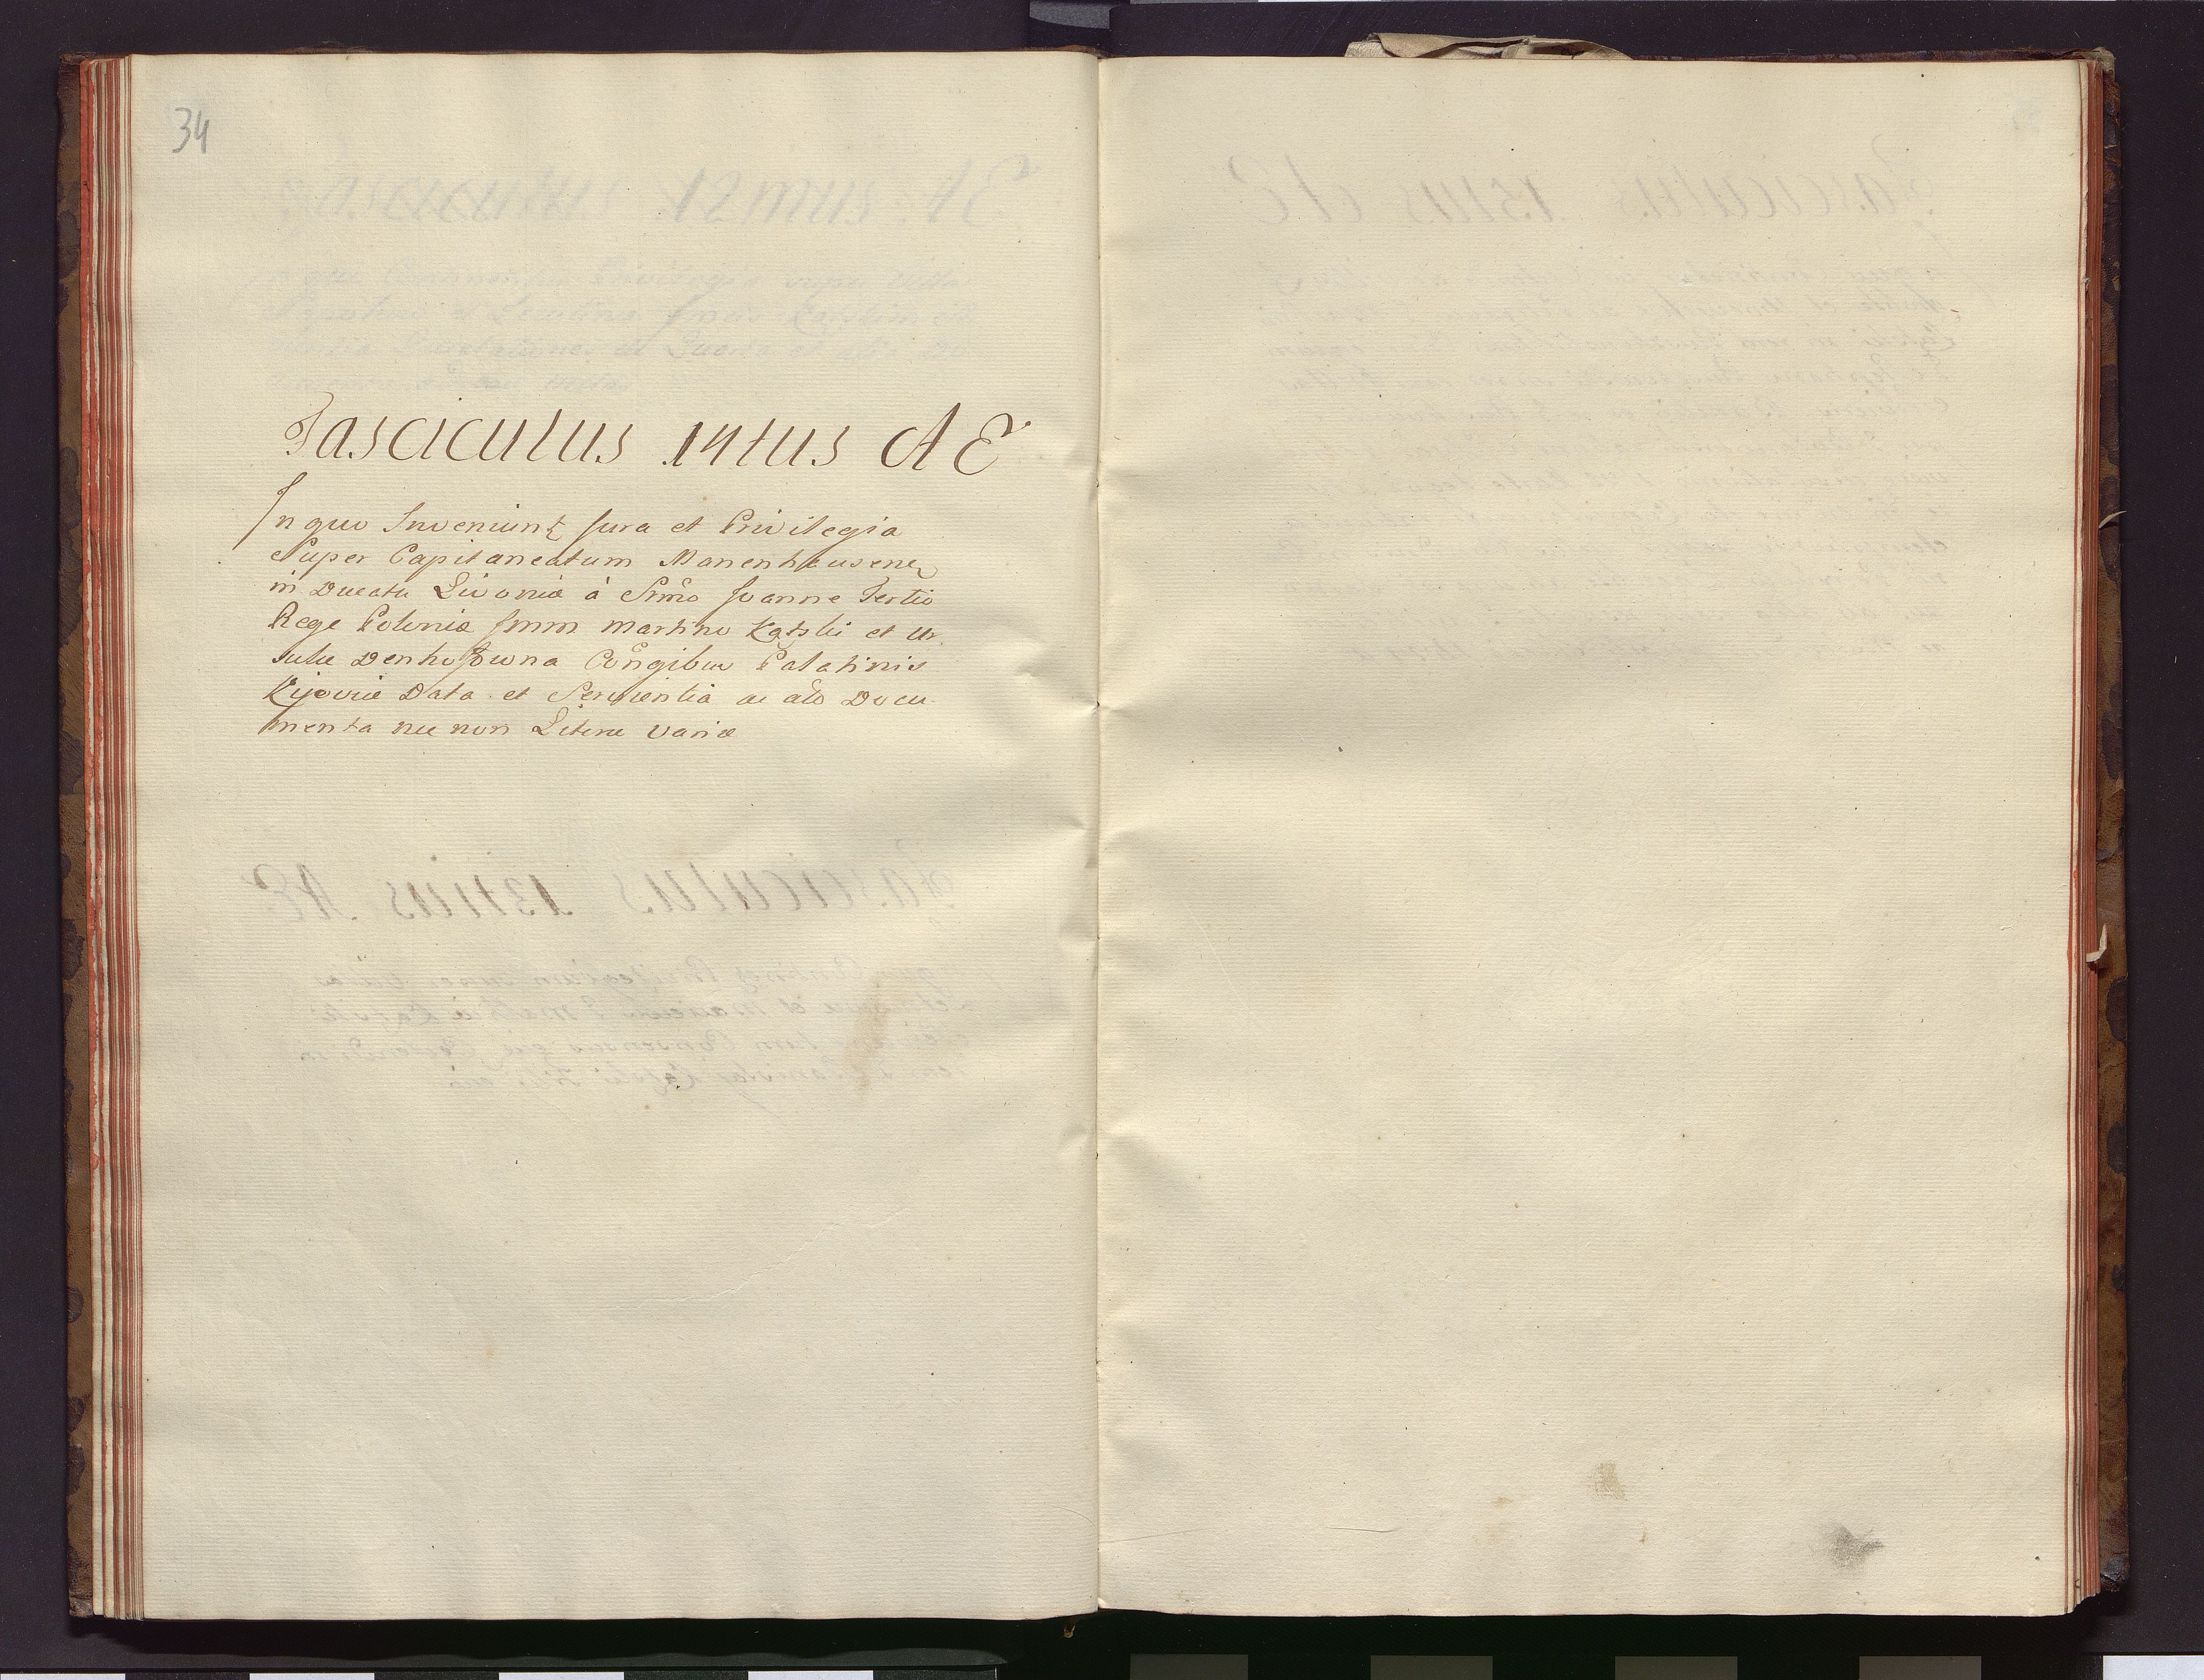 34
Fasciculus 14tus AE
In quo Inveniunt Jura et Privilegia
Super Capitaneatum Marienhausens
in Ducatu Livoniæ à Srmo Joanne Tertio
Rege Poloniæ Martino Kątski et Ur
sulæ Denhofowna Conjgibus Palatinis
Kijoviæ Data et Servientia ac alia Docu
menta nec non Literæ Variæ